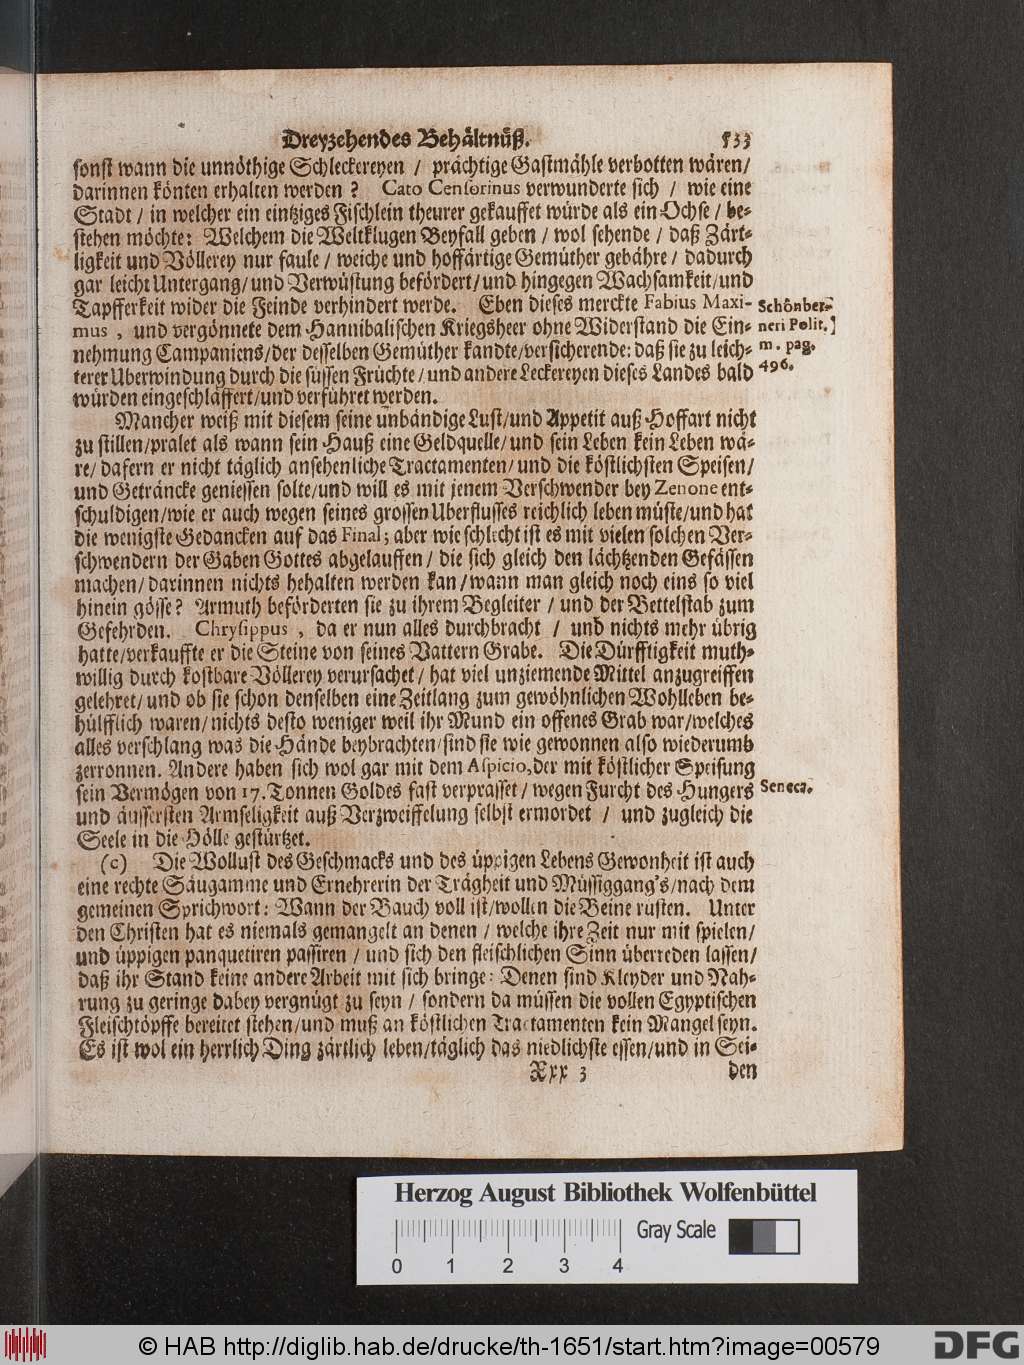 Dreyzehendes Behältnüß. 533
sonst wann die unnöthige Schleckereyen / prächtige Gastmähle verbotten wären/
darinnen könten erhalten werden ? Cato Censorinus verwunderte sich / wie eine
Stadt / in welcher ein eintziges Fischlein theurer gekauffet würde als ein Ochse / be-
stehen möchte: Welchem die Weltklugen Beyfall geben / wol sehende / daß Zärt-
ligkeit und Völlerey nur faule / weiche und hoffärtige Gemüther gebähre / dadurch
gar leicht Untergang/und Verwüstung befördert/und hingegen Wachsamkeit/und
Tapfferkeit wider die Feinde verhindert werde. Eben dieses merckte Fabius Maxi-
mus , und vergönnete dem Hannibalischen Kriegsheer ohne Widerstand die Ein-
nehmung Campaniens/der desselben Gemüther kandte/versicherende: daß sie zu leich-
terer Uberwindung durch die süssen Früchte/und andere Leckereyen dieses Landes bald
würden eingeschläffert/und verführet werden.
Schönber-
neri Polit.
m. pag.
496.
Mancher weiß mit diesem seine unbändige Lust/und Appetit auß Hoffart nicht
zu stillen/pralet als wann sein Hauß eine Geldquelle/und sein Leben kein Leben wä-
re/dafern er nicht täglich ansehenliche Tractamenten/und die köstlichsten Speisen/
und Geträncke geniessen solte/und will es mit jenem Verschwender bey Zenone ent-
schuldigen/wie er auch wegen seines grossen Uberflusses reichlich leben müste/und hat
die wenigste Gedancken auf das Final; aber wie schlecht ist es mit vielen solchen Ver-
schwendern der Gaben Gottes abgelauffen / die sich gleich den lächtzenden Gefässen
machen/darinnen nichts behalten werden kan/wann man gleich noch eins so viel
hinein gösse? Armuth beförderten sie zu ihrem Begleiter / und der Bettelstab zum
Gefehrden. Chrysippus , da er nun alles durchbracht / und nichts mehr übrig
hatte/verkauffte er die Steine von seines Vattern Grabe. Die Dürfftigkeit muth-
willig durch kostbare Völlerey verursachet/hat viel unziemende Mittel anzugreiffen
gelehret/und ob sie schon denselben eine Zeitlang zum gewöhnlichen Wohlleben be-
hülfflich waren/nichts desto weniger weil ihr Mund ein offenes Grab war/welches
alles verschlang was die Hände beybrachten/sind sie wie gewonnen also wiederumb
zerronnen. Andere haben sich wol gar mit dem Aspicio,der mit köstlicher Speisung
sein Vermögen von 17. Tonnen Goldes fast verprasset/wegen Furcht des Hungers
und äussersten Armseligkeit auß Verzweiffelung selbst ermordet / und zugleich die
Seele in die Hölle gestürtzet.
Seneca.
(c) Die Wollust des Geschmacks und des üppigen Lebens Gewonheit ist auch
eine rechte Säugamme und Ernehrerin der Trägheit und Müssiggang's/nach dem
gemeinen Sprichwort: Wann der Bauch voll ist/wollen die Beine rusten. Unter
den Christen hat es niemals gemangelt an denen / welche ihre Zeit nur mit spielen/
und üppigen panquetiren passiren / und sich den fleischlichen Sinn überreden lassen/
daß ihr Stand keine andere Arbeit mit sich bringe: Denen sind Kleyder und Nah-
rung zu geringe dabey vergnügt zu seyn / sondern da müssen die vollen Egyptischen
Fleischtöpffe bereitet stehen/und muß an köstlichen Tractamenten kein Mangel seyn.
Es ist wol ein herrlich Ding zärtlich leben/täglich das niedlichste essen/und in Sei-
Xxx 3 den
Herzog August Bibliothek Wolfenbüttel
Gray Scale
0 1 2 3 4
© HAB http://diglib.hab.de/drucke/th-1651/start.htm?image=00579
DFG